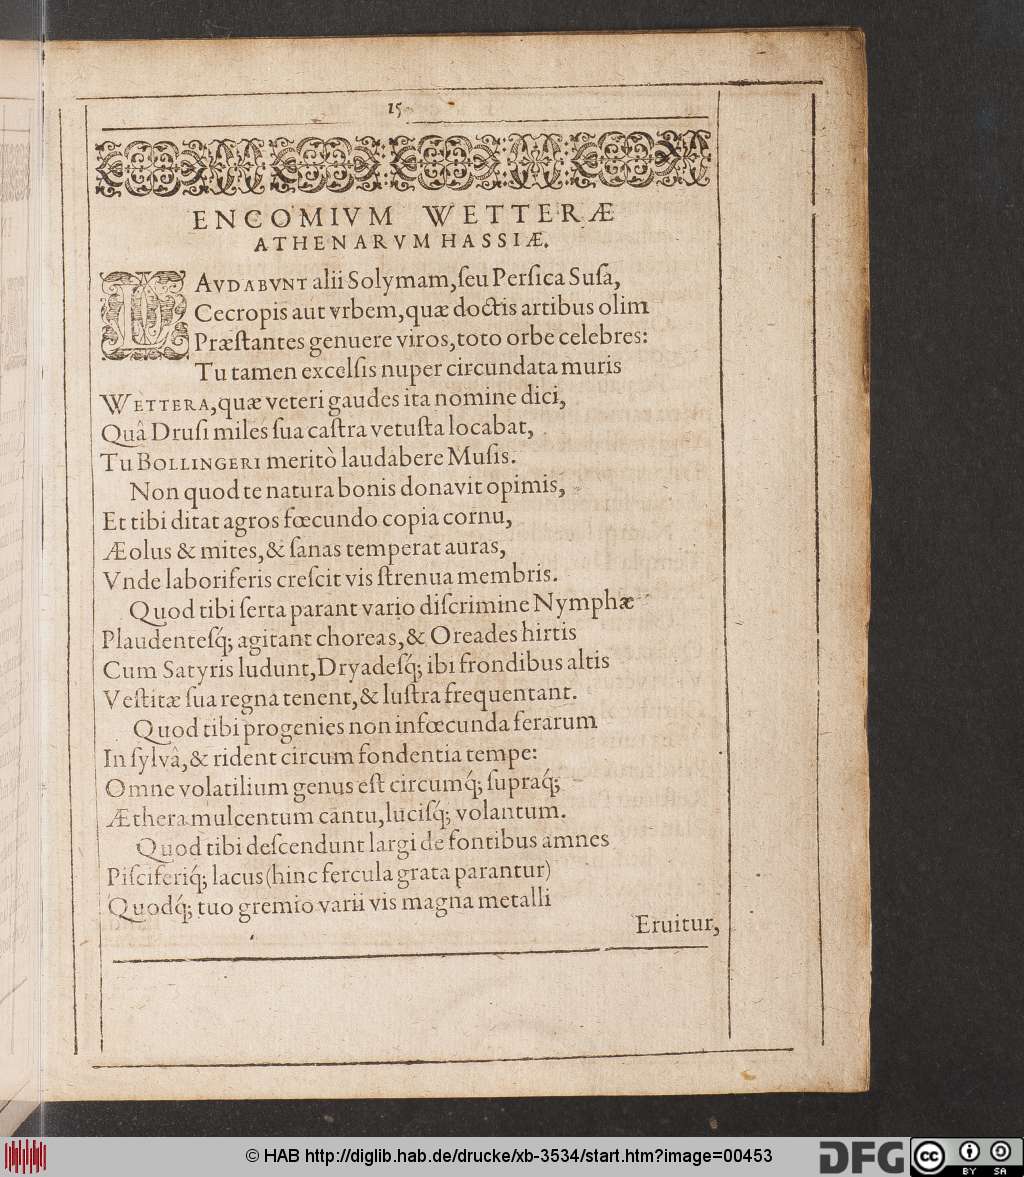 15
ENCOMIVM WETTERÆ
ATHENARVM HASSIÆ.
LAVDABVNT alii Solymam, ſeu Perſica Suſa,
Cecropis aut vrbem, quæ doctis artibus olim
Præſtantes genuere viros, toto orbe celebres:
Tu tamen excelſis nuper circundata muris
WETTERA, quæ veteri gaudes ita nomine dici,
Quâ Druſi miles ſua caſtra vetuſta locabat,
Tu BOLLINGERI meritò laudabere Muſis.
Non quod te natura bonis donavit opimis,
Et tibi ditat agros fœcundo copia cornu,
Æolus & mites, & ſanas temperat auras,
Vnde laboriferis creſcit vis ſtrenua membris.
Quod tibi ſerta parant vario diſcrimine Nymphæ
Plaudenteſq́; agitant choreas, & Oreades hirtis
Cum Satyris ludunt, Dryadeſq́; ibi frondibus altis
Veſtitæ ſua regna tenent, & luſtra frequentant.
Quod tibi progenies non infœcunda ferarum
In ſylvâ, & rident circum fondentia tempe:
Omne volatilium genus eſt circumq́; ſupraq́;
Æthera mulcentum cantu, luciſq́; volantum.
Quod tibi deſcendunt largi de fontibus amnes
Piſciferiq́; lacus (hinc fercula grata parantur)
Quodq́; tuo gremio varii vis magna metalli
Eruitur,
© HAB http://diglib.hab.de/drucke/xb-3534/start.htm?image=00453
DFG
cc BY SA